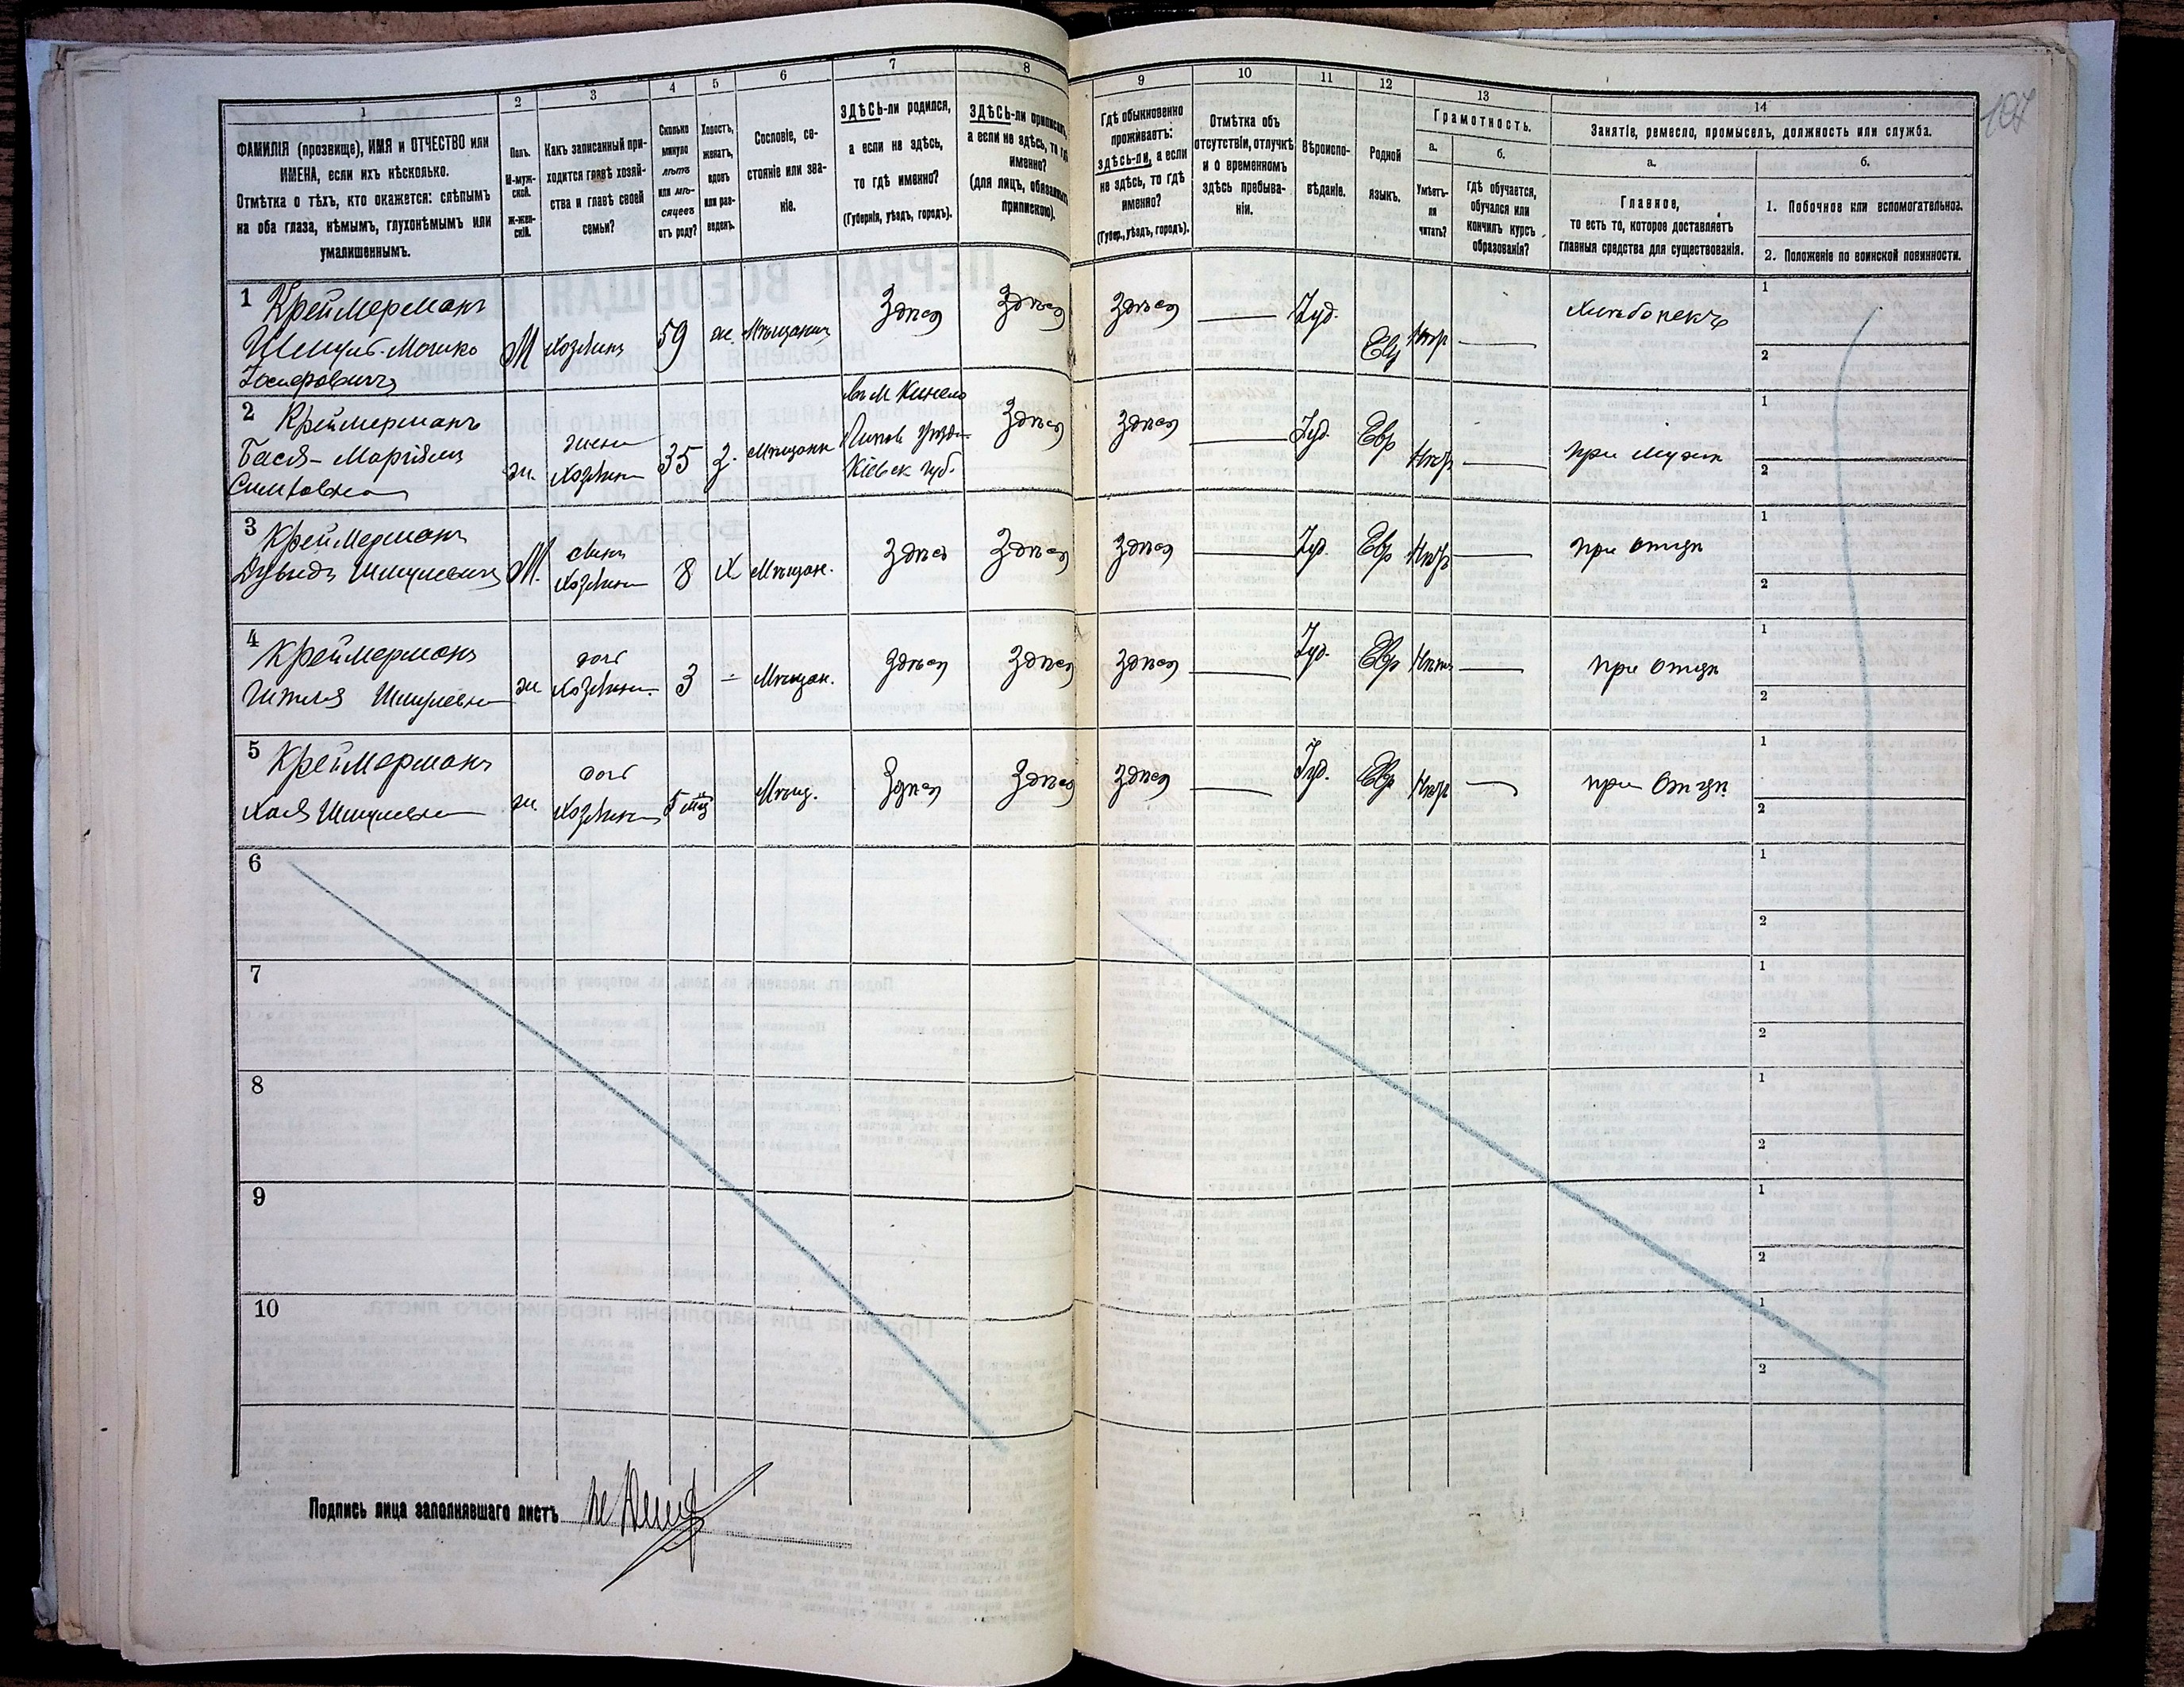 107
1
2
3
4
5
6
7
8
9
10
11
12
13
14
ФАМИЛІЯ (прозвище), ИМЯ и ОТЧЕСТВО или
ИМЕНА, если ихъ нѣсколько.
Отмѣтка о тѣхъ, кто окажется: слѣпымъ
на оба глаза, нѣмымъ, глухонѣмымъ или
умалишеннымъ.
Полъ.
М-муж-
ской.
Ж-жен-
скій.
Какъ записанный при-
ходится главѣ хозяй-
ства и главѣ своей
семьи?
Сколько
минуло
лѣтъ
или мѣ-
сяцевъ
отъ роду?
Холостъ,
женатъ,
вдовъ
или раз-
веденъ.
Сословіе, со-
стояніе или зва-
ніе.
ЗДѢСЬ-ли родился,
а если не здѣсь,
то гдѣ именно?
(Губернія, уѣздъ, городъ).
ЗДѢСЬ-ли приписанъ,
а если не здѣсь, то гдѣ
именно?
(для лицъ, обязанныхъ
припискою).
Гдѣ обыкновенно
проживаетъ:
здѣсь-ли, а если
не здѣсь, то гдѣ
именно?
(Губер., уѣздъ, городъ).
Отмѣтка объ
отсутствіи, отлучкѣ
и о временномъ
здѣсь пребыва-
ніи.
Вѣроиспо-
вѣданіе.
Родной
языкъ.
Грамотность.
а.
Умѣетъ-
ли
читать?
б.
Гдѣ обучается,
обучался или
кончилъ курсъ
образованія?
Занятіе, ремесло, промыселъ, должность или служба.
а.
Главное,
то есть то, которое доставляетъ
главныя средства для существованія.
б.
1. Побочное или вспомогательное.
2. Положеніе по воинской повинности.
1 Креймерманъ
Шмуль-Мошко
Іосифовичъ
М Хозяинъ 59 ж. Мѣщанинъ Здѣсь Здѣсь Здѣсь Іуд. Евр Нѣтъ Хлѣбопекъ
1
2
2 Креймерманъ
Бася-Марьям
ж. жена
Хозяина 35 З. Мѣщанк
Липов уѣзда
Кіевск губ.
Здѣсь Здѣсь Іуд. Евр Нѣтъ при мужѣ
1
2
3 Креймерманъ
Дувидъ Шмулевичъ
М. сынъ
Хозяина 8 Х Мѣщан. Здѣсь Здѣсь Здѣсь Іуд. Евр Нѣтъ при отцѣ
1
2
4 Креймерманъ
Гитля Шмулевна
ж доч
Хозяина 3 - Мѣщан. Здѣсь Здѣсь Здѣсь Іуд. Евр Нѣтъ при отцѣ
1
2
5 Креймерманъ
Хая Шмулевна
ж. доч
Хозяина 5 мѣц Мѣщ. Здѣсь Здѣсь Здѣсь Іуд. Евр Нѣтъ при отцѣ
1
2
6
1
2
7
1
2
8
1
2
9
1
2
10
1
2
Подпись лица заполнявшаго листъ